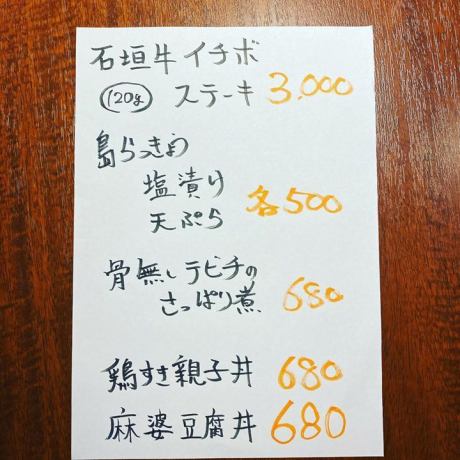 石垣牛イチボ
120g ステーキ 3,000
島らっきょ
塩漬け
天ぷら 各500
骨無しテビチの
さっぱり煮 680
鶏すき親子丼 680
麻婆豆腐丼 680